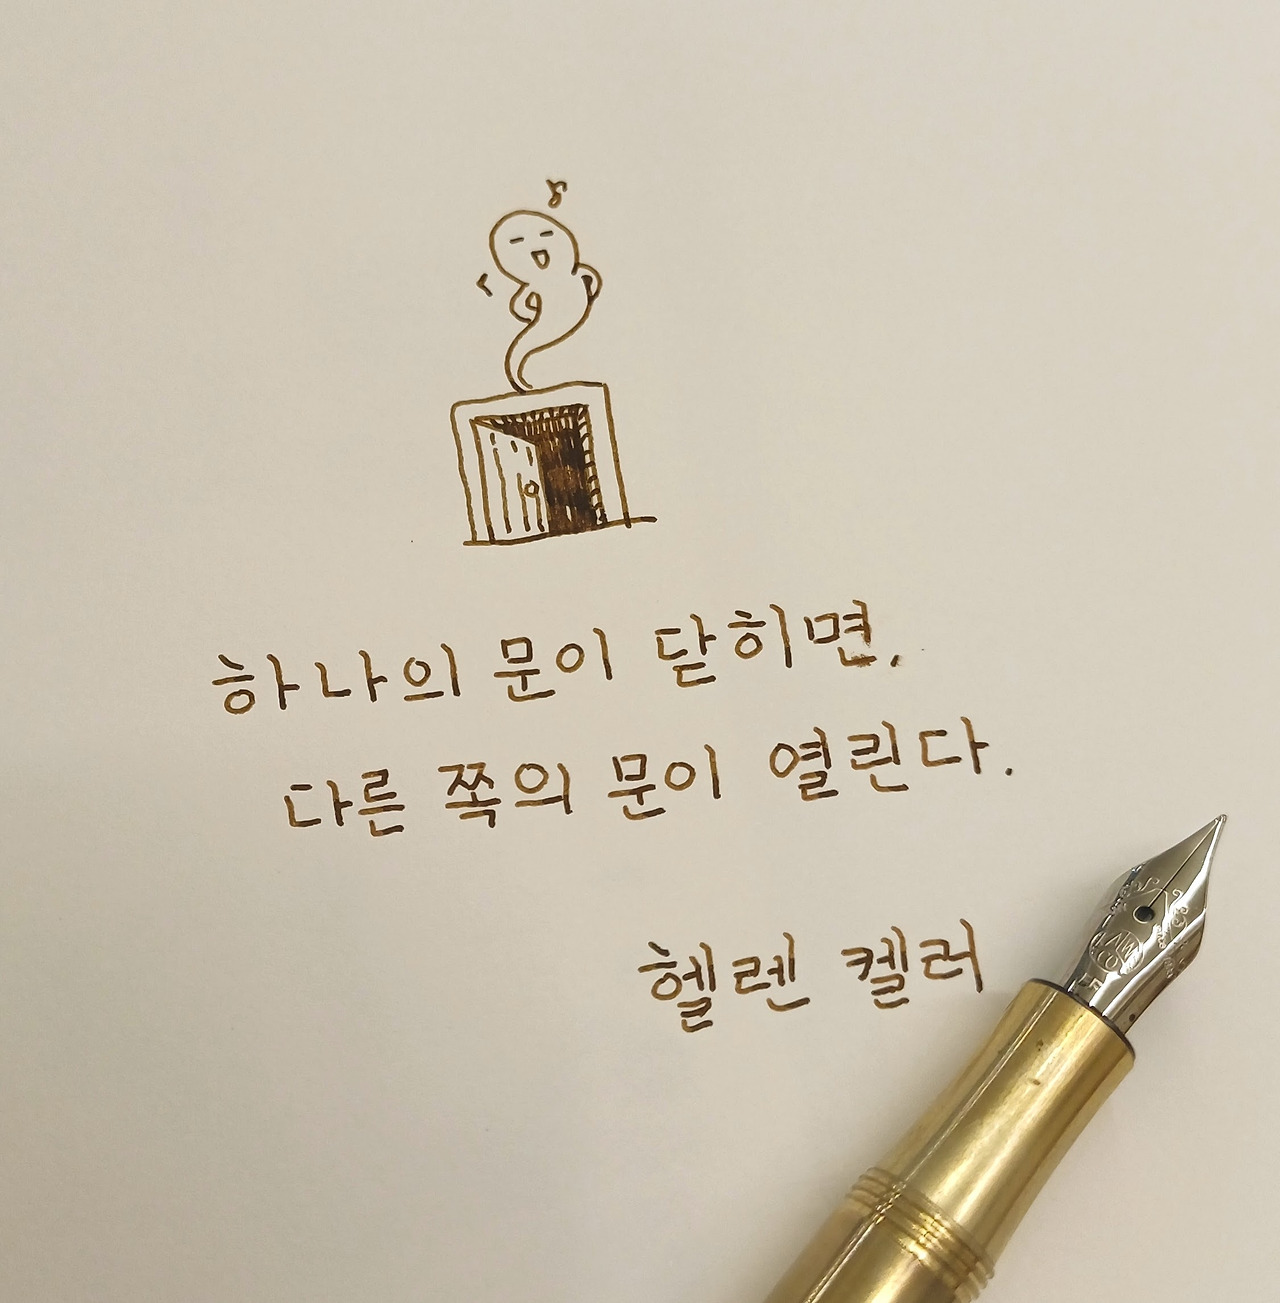 하나의 문이 닫히면,
다른 쪽의 문이 열린다.
헬렌 켈러